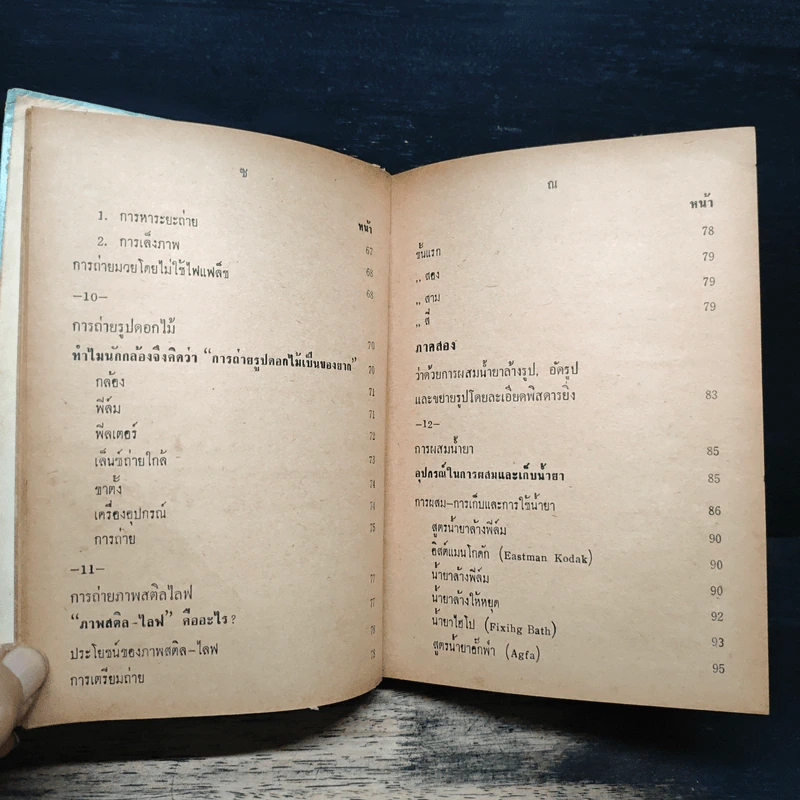 ช
หน้า
1. การหาระยะถ่าย 67
2. การเล็งภาพ 68
การถ่ายมวยโดยไม่ใช้ไฟแฟล็ช 68
–10–
การถ่ายรูปดอกไม้ 70
ทำไมนักกล้องจึงคิดว่า “การถ่ายรูปดอกไม้เป็นของยาก” 70
กล้อง 71
ฟิล์ม 71
ฟิลเตอร์ 72
เล็นซ์ถ่ายใกล้ 73
ขาตั้ง 74
เครื่องอุปกรณ์ 74
การถ่าย 75
–11–
การถ่ายภาพสติลไลฟ 77
“ภาพสติล-ไลฟ” คืออะไร? 77
ประโยชน์ของภาพสติล–ไลฟ 78
การเตรียมถ่าย 78
ณ
หน้า
ขั้นแรก 78
,, สอง 79
,, สาม 79
,, สี่ 79
ภาคสอง
ว่าด้วยการผสมน้ำยาล้างรูป, อัดรูป
และขยายรูปโดยละเอียดพิสดารยิ่ง 83
–12–
การผสมน้ำยา 85
อุปกรณ์ในการผสมและเก็บน้ำยา 85
การผสม–การเก็บและการใช้น้ำยา 86
สูตรน้ำยาล้างฟิล์ม 90
อิสต์แมนโกดัก (Eastman Kodak) 90
น้ำยาล้างฟิล์ม 90
น้ำยาล้างให้หยุด 92
น้ำยาไฮโป (Fixihg Bath) 93
สูตรน้ำยาอั๊กฟ่า (Agfa) 95